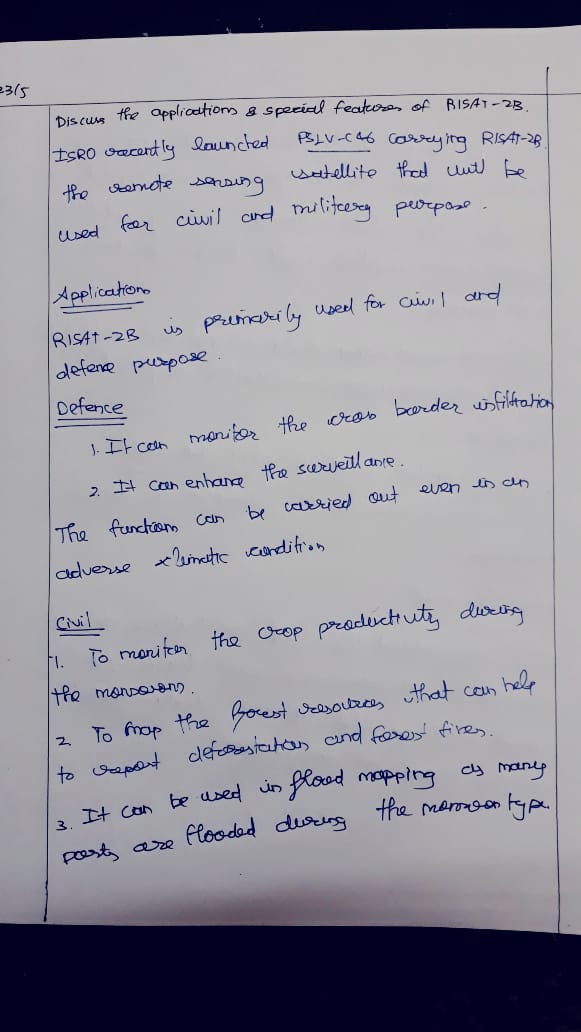 23/5
Discuss the applications & special features of RISAT-2B.
ISRO recently launched PSLV-C46 carrying RISAT-2B
the remote sensing satellite that will be
used for civil and military purpose.
Applications
RISAT-2B is primarily used for civil and
defence purpose.
Defence
1. It can monitor the cross boarder infiltration
2. It can enhance the surveillance.
The function can be carried out even in an
adverse climatic condition
Civil
1. To moniter the crop productivity during
the monsoons.
2 To map the forest resources that can help
to report deforestation and forest fires.
3. It can be used in flood mapping as many
parts are flooded during the monsoon type.